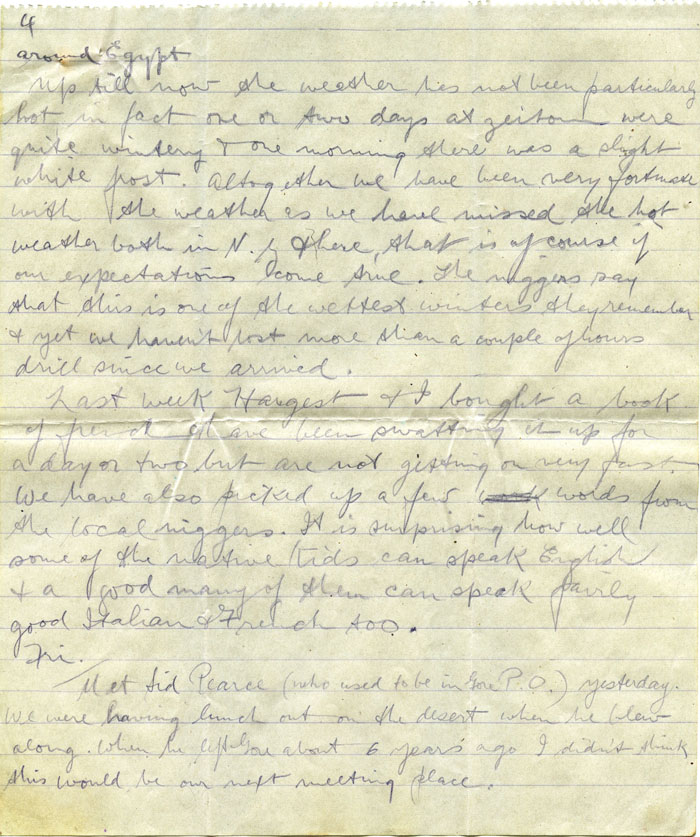 4
around Egypt
Up till now the weather has not been particularly
hot in fact one or two days at zeitoun were
quite wintery & one morning there was a slight
white frost. Altogether we have been very fortunate
with the weather as we have missed the hot
weather both in N.Z & here, that is of course if
our expectations come true. The niggers say
that this is one of the wettest winters they remember
& yet we haven't lost more than a couple of hours
drill since we arrived.
Last week Hargest & I bought a book
of french & have been swatting it up for
a day or two but are not getting on very fast.
We have also picked up a few words from
the local niggers. It is surprising how well
some of the native kids can speak English
& a good many of them can speak fairly
good Italian & French too.
Fri.
Met Sid Pearce (who used to be in Gore P.O.) yesterday.
We were having lunch out on the desert when he blew
along. When he left Gore about 6 years ago I didn't think
this would be our next meeting place.